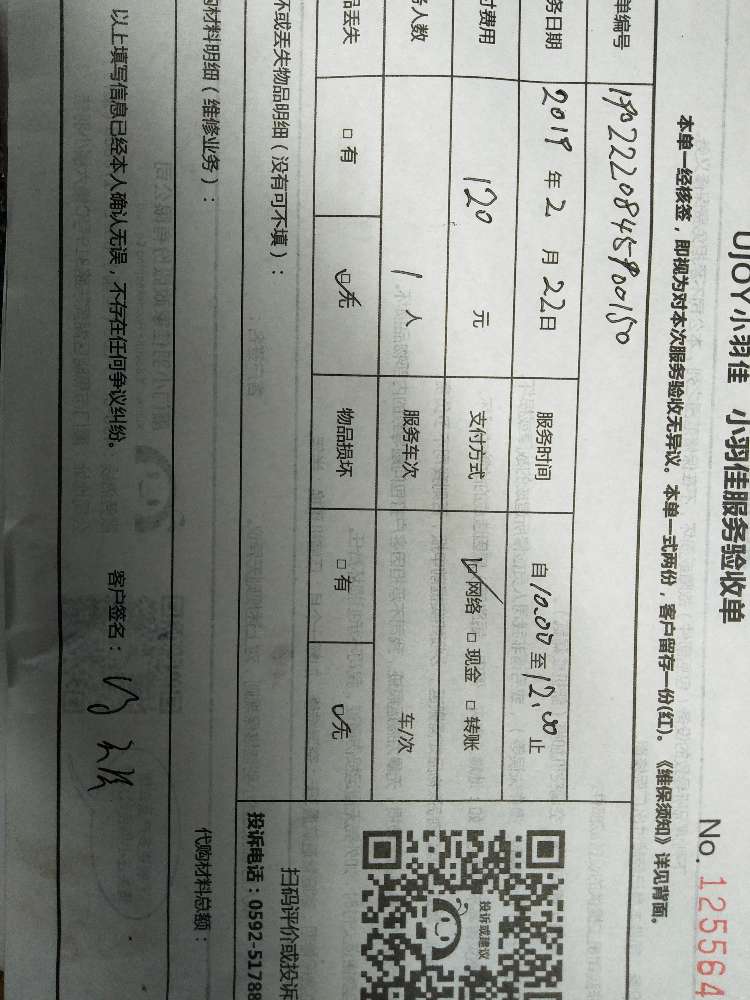 UJOY小羽佳 小羽佳服务验收单
No. 125564
本单一经核签，即视为对本次服务验收无异议。本单一式两份，客户留存一份(红)。《维保须知》详见背面。
单编号 190222084590150
务日期 2019 年 2 月 22 日 服务时间 自 10.00 至 12.00 止
付费用 120 元 支付方式 ☑网络 □现金 □转账
务人数 1 人 服务车次 车/次
品丢失 □有 ☑无 物品损坏 □有 ☑无
坏或丢失物品明细（没有可不填）：
投诉或建议
扫码评价或投诉
投诉电话：0592-51788
购材料明细（维修业务）： 代购材料总额：
以上填写信息已经本人确认无误，不存在任何争议纠纷。 客户签名：